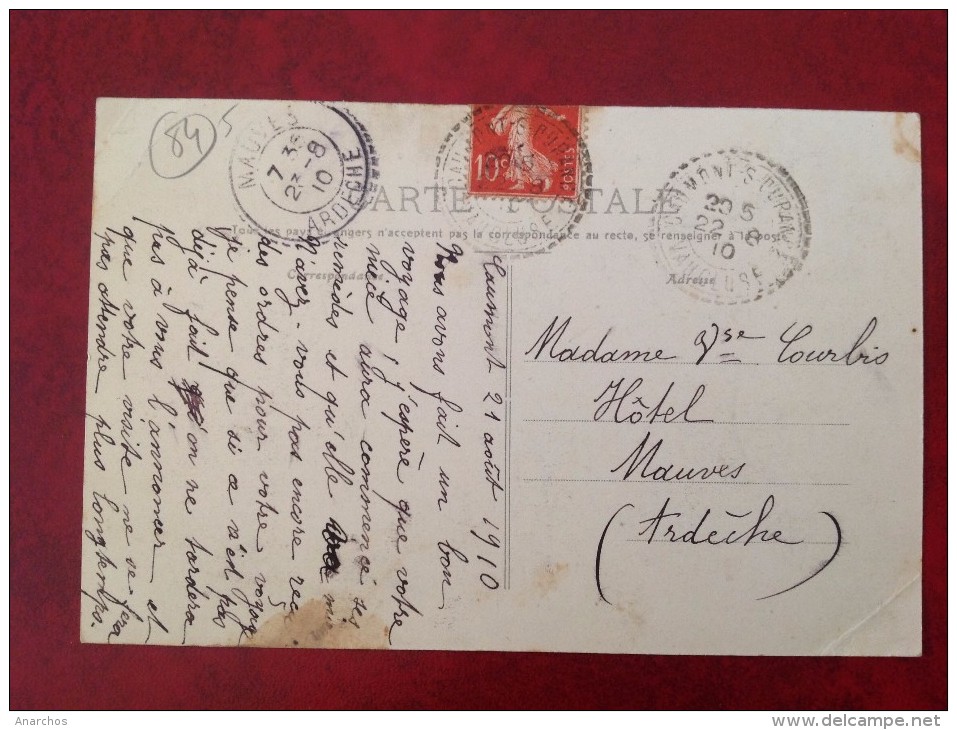 84
5
MAUVES
7 35
23 - 8
10
ARDECHE
10c
POSTES
CAUMONT-S-DURANCE
20 5
22 8
10
VAUCLUSE
CARTE POSTALE
Tous les pays étrangers n'acceptent pas la correspondance au recto, se renseigner à la poste
Correspondance
Adresse
Caumont 21 août 1910
Nous avons fait un bon
voyage, j'espère que votre
mère aura commencé ses
remèdes et qu'elle
N'avez-vous pas encore reçu
des ordres pour votre voyage
je pense que si ce n'est pas
déjà fait qu'on ne tardera
pas à vous l'annoncer et
que votre visite ne se fera
pas attendre plus longtemps.
Madame Vse Courbis
Hôtel
Mauves
(Ardèche)
Anarchos
www.delcampe.net